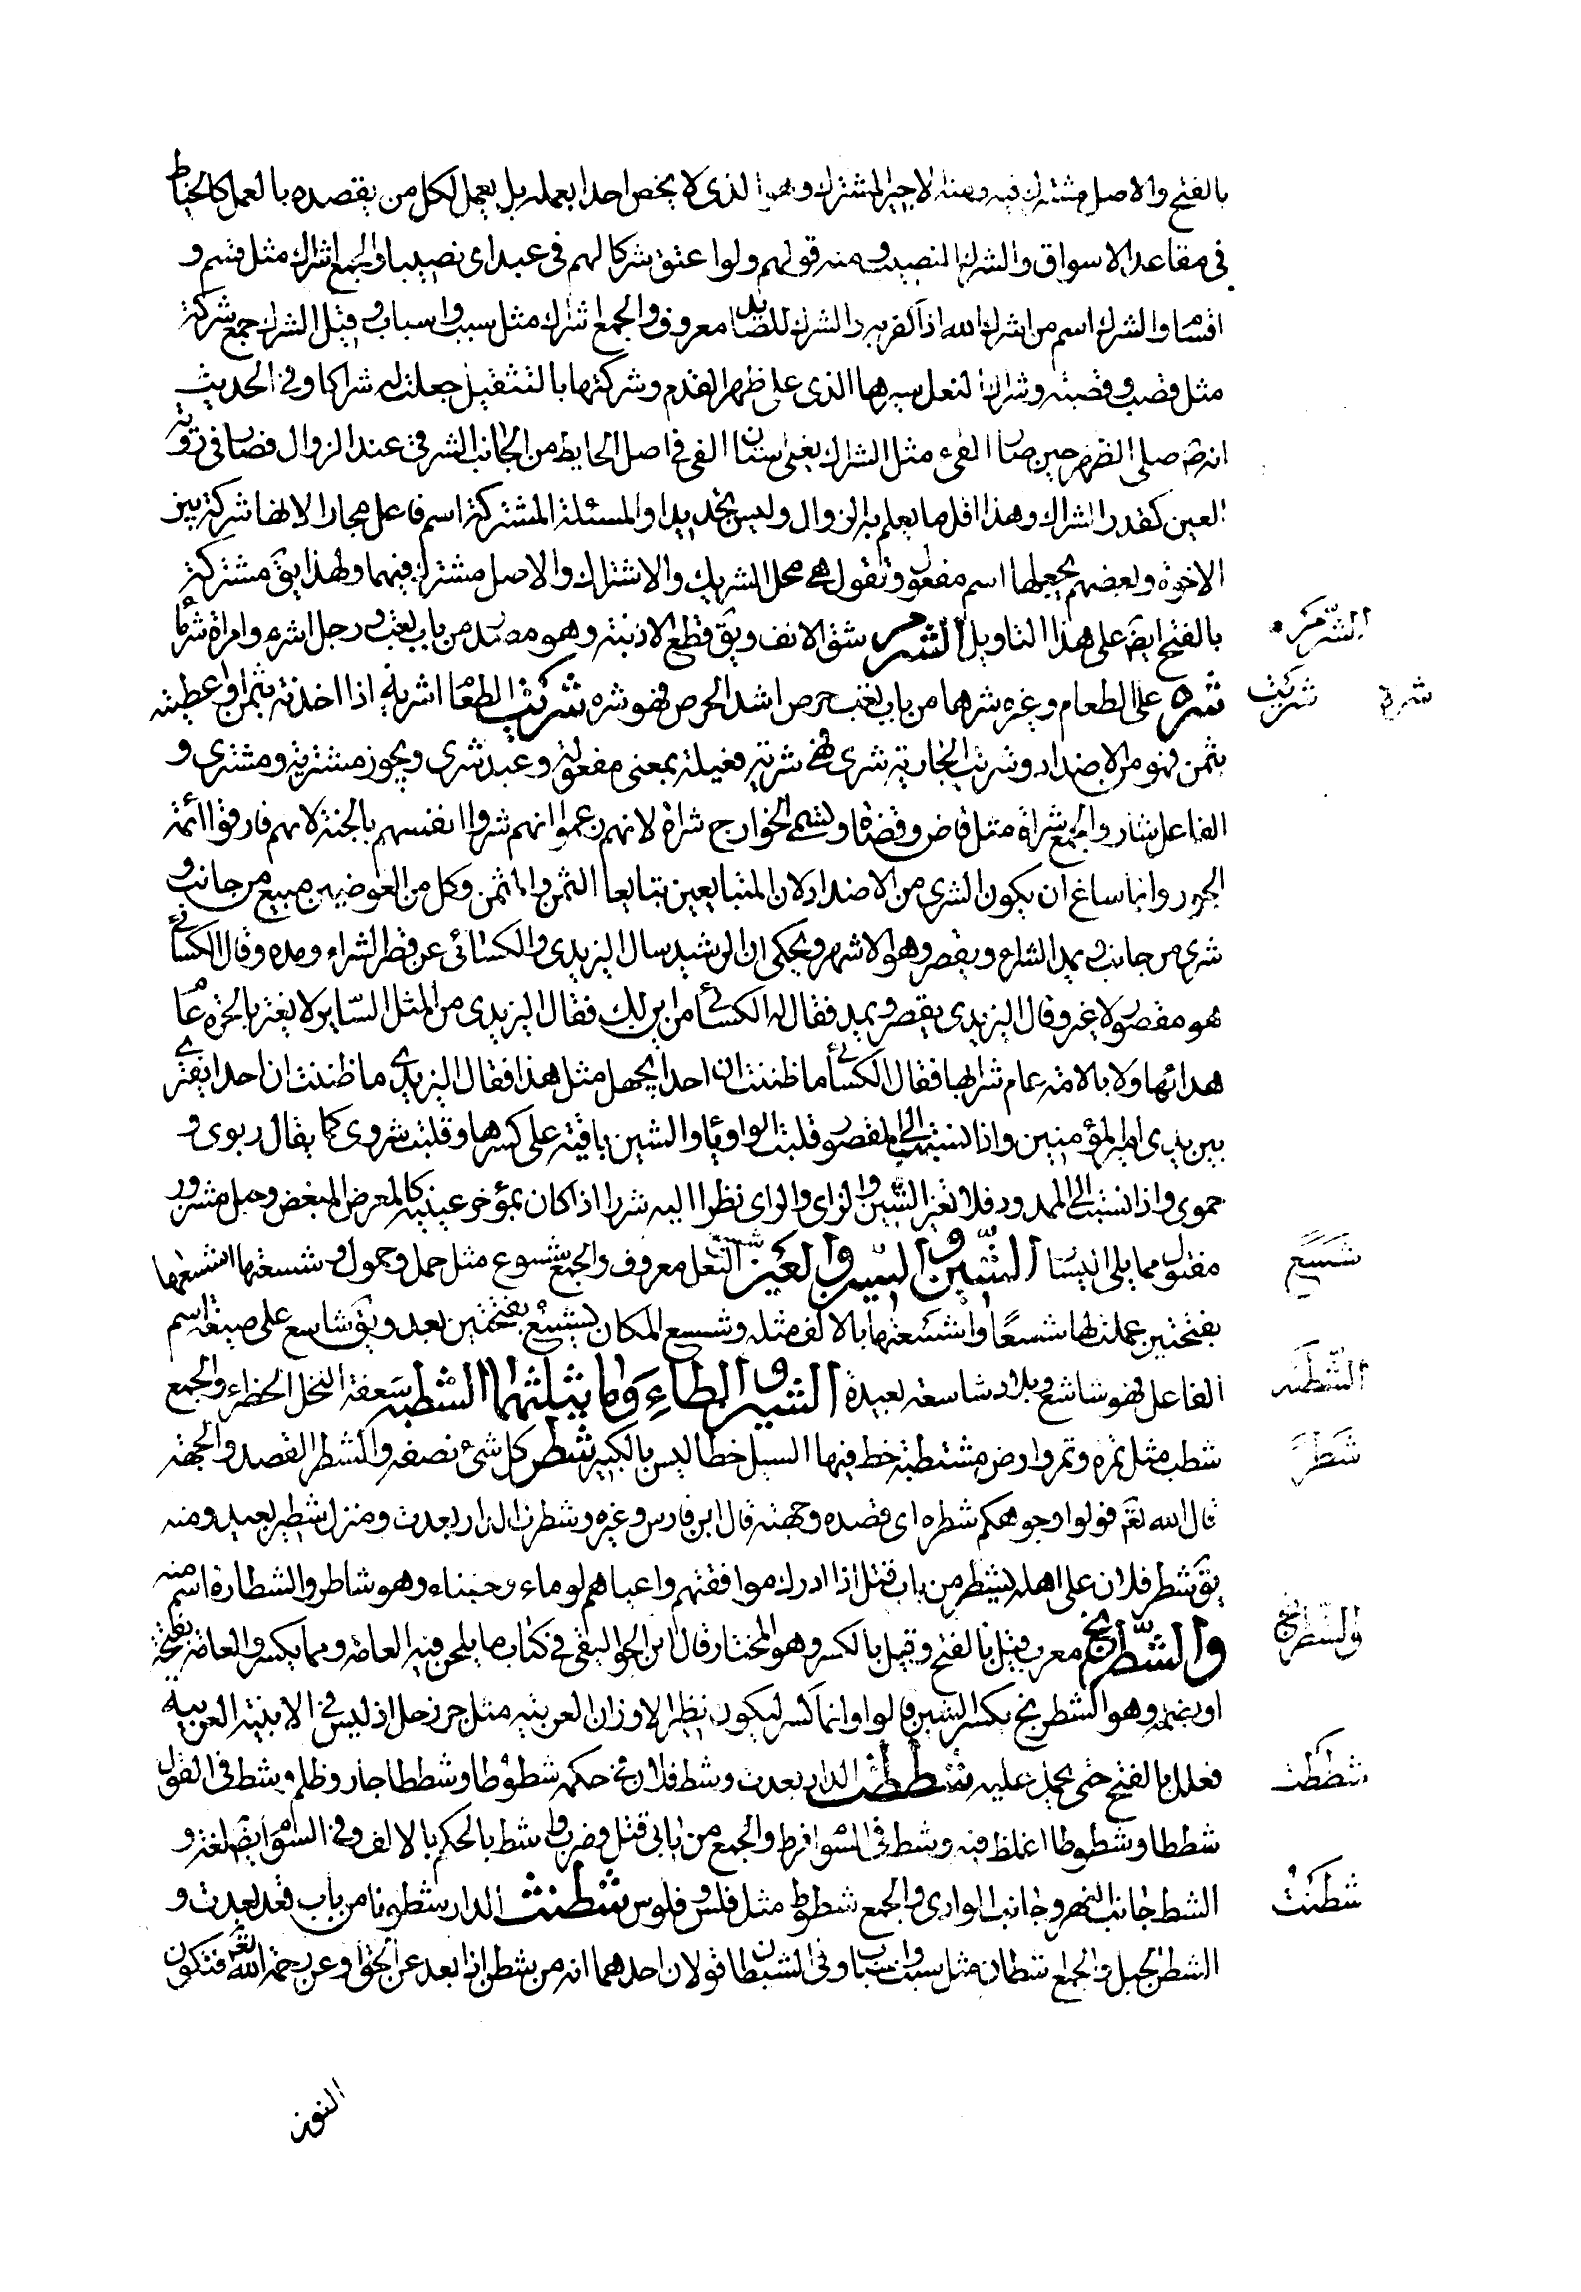 بالفتح والاصل مشترك فيه ومنه الاجير المشترك وهو الذى لا يخص احدا بعمله بل يعمل لكل من يقصده بالعمل كالخياط
فى مقاعد الاسواق والشرك النصيب ومنه قولهم ولو اعتق شركا لهم فى عبد اى نصيبا والجمع اشراك مثل قسم و
اقسام والشرك اسم من اشرك الله اذا كفر به والشرك للصايد معروف والجمع اشراك مثل سبب واسباب وقيل الشرك جمع شركة
مثل قصب وقصبة وشراك النعل سيرها الذى على ظهر القدم وشركتها بالتثقيل جعلت له شراكا وفى الحديث
انه ص صلى الظهر حين صار الفىء مثل الشراك يعنى استبان الفى فى اصل الحايط من الجانب الشرقى عند الزوال فصار فى روية
العين كقدر الشراك وهذا اقل ما يعلم به الزوال وليس تحديدا والمسئلة المشتركة اسم فاعل مجازا لانها شركت بين
الاخوة وبعضهم يجعلها اسم مفعول وتقول هى محل الشريك والاشتراك والاصل مشترك فيهما ولهذا يق مشتركة
بالفتح ايض على هذا التاويل الشرم شق الانف ويق قطع الارنبة وهو مصدر من باب تعب ورجل اشرم وامراة شرما
شره على الطعام وغيره شرها من باب تعب حرص اشد الحرص فهو شره شريت الطعام اشريه اذا اخذته بثمن او اعطيته
بثمن فهو من الاضداد وشريت الجارية شرى فهى شرية فعيلة بمعنى مفعولة وعبد شرى ويجوز مشترية ومشترى و
الفاعل شار والجمع شراة مثل قاض وقضاة وتسمى الخوارج شراة لانهم زعموا انهم شروا انفسهم بالجنة لانهم فارقوا ائمة
الجور وانما ساغ ان يكون الشرى من الاضداد لان المتبايعين تبايعا الثمن والمثمن وكل من العوضين مبيع من جانب و
شرى من جانب ويمد الشراء ويقصر وهو الاشهر ويحكى ان الرشيد سال اليزيدى والكسائى عن قصر الشراء ومده وقال الكسائى
هو مقصور لا غير وقال اليزيدى يقصر ويمد فقال له الكسائى من اين لك فقال اليزيدى من المثل الساير لا يغتر بالحرة عام
هدائها ولا بالامة عام شرائها فقال الكسائى ما ظننت ان احدا يجهل مثل هذا فقال اليزيدى ما ظننت ان احدا يفترى
بين يدى امير المؤمنين واذا نسبت الى المقصور قلبت الواو ياء والشين باقية على كسرها وقلت شروى كما يقال ربوى و
حموى واذا نسبت الى الممدود فلا تغير الشين والزاى والراى نظر اليه شزرا اذا كان بمؤخر عينيه كالمعرض المبغض وحبل مشزور
مفتول مما يلى اليسار الشين والسين والعين شسع النعل معروف والجمع شسوع مثل حمل وحمول وشسعتها اشسعها
بفتحتين عملت لها شسعا واشسعتها بالالف مثله وشسع المكان يشسع بفتحتين بعد ويق شاسع على صيغة اسم
الفاعل فهو شاسع وبلاد شاسعة بعيدة الشين والطاء وما يثلثهما الشطبة سعفة النخل الخضراء والجمع
شطب مثل تمرة وتمر وارض مشطبة خط فيها السيل خطا ليس بالكبير شطر كل شىء نصفه والشطر القصد والجهة
قال الله تعم فولوا وجوهكم شطره اى قصده وجهته قال ابن فارس وغيره وشطرت الدار بعدت ومنزل شطير بعيد ومنه
يق شطر فلان على اهله يشطر من باب قتل اذا ادرك موافقتهم واعياهم لوماء وخبثاء وهو شاطر والشطارة اسم منه
والشطرنج معرب قيل بالفتح وقيل بالكسر وهو المختار قال ابن الجواليقى فى كتاب ما يلحن فيه العامة ومما يكسر والعامة تفتحه
او تضمه وهو الشطرنج بكسر الشين قالوا وانما كسر ليكون نظير الاوزان العربية مثل جردحل اذ ليس فى الابنية العربية
فعلل بالفتح حتى يحمل عليه شططت الدار بعدت وشط فلان فى حكمه شطوطا وشططا جار وظلم وشط فى القول
شططا وشطوطا اغلظ فيه وشط فى السوم افرط والجمع من بابى قتل وضرب واشط بالحكم بالالف وفى السوم ايض لغة و
الشط جانب النهر وجانب الوادى والجمع شطوط مثل فلس وفلوس شطنت الدار شطونا من باب قعد بعدت و
الشطن الحبل والجمع اشطان مثل سبب واسباب وفى الشيطان قولان احدهما انه من شطن اذا بعد عن الحق او عن رحمة الله تعم فتكون
الشرم
شره شريت
شسع
الشطبة
شطر
والشطرنج
شططت
شطنت
النون